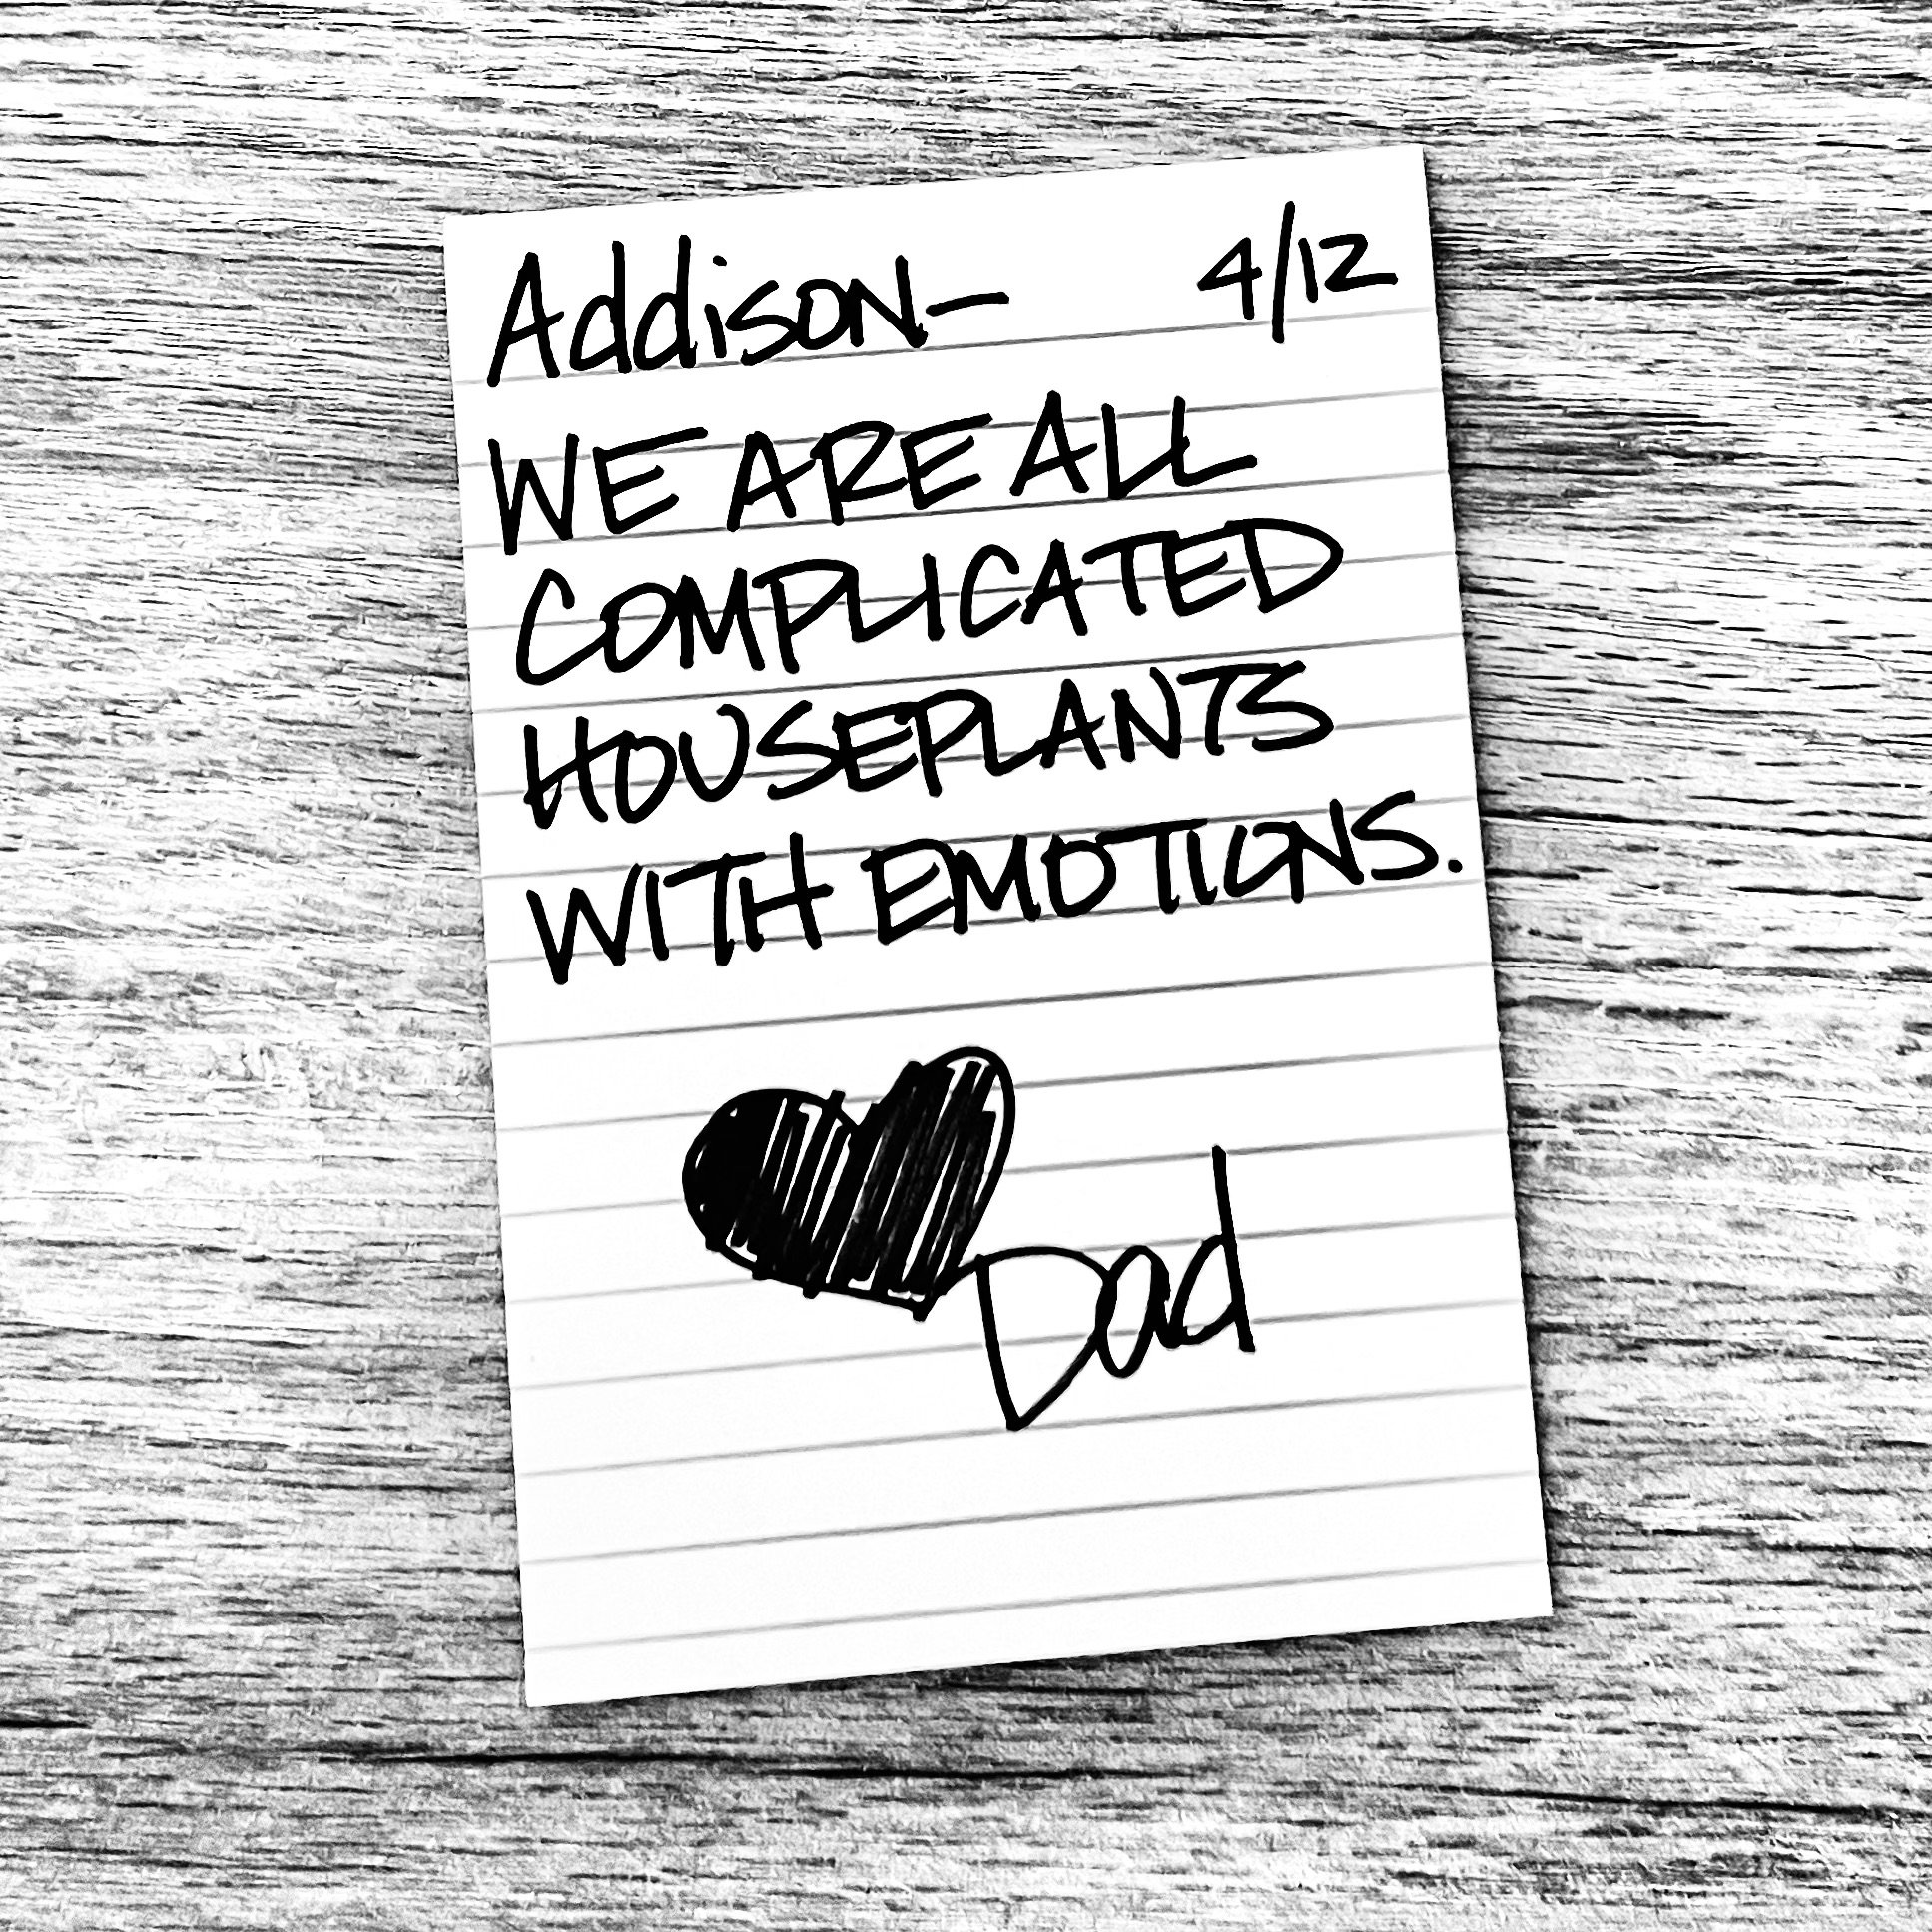 Addison— 4/12
WE ARE ALL
COMPLICATED
HOUSEPLANTS
WITH EMOTIONS.
Dad